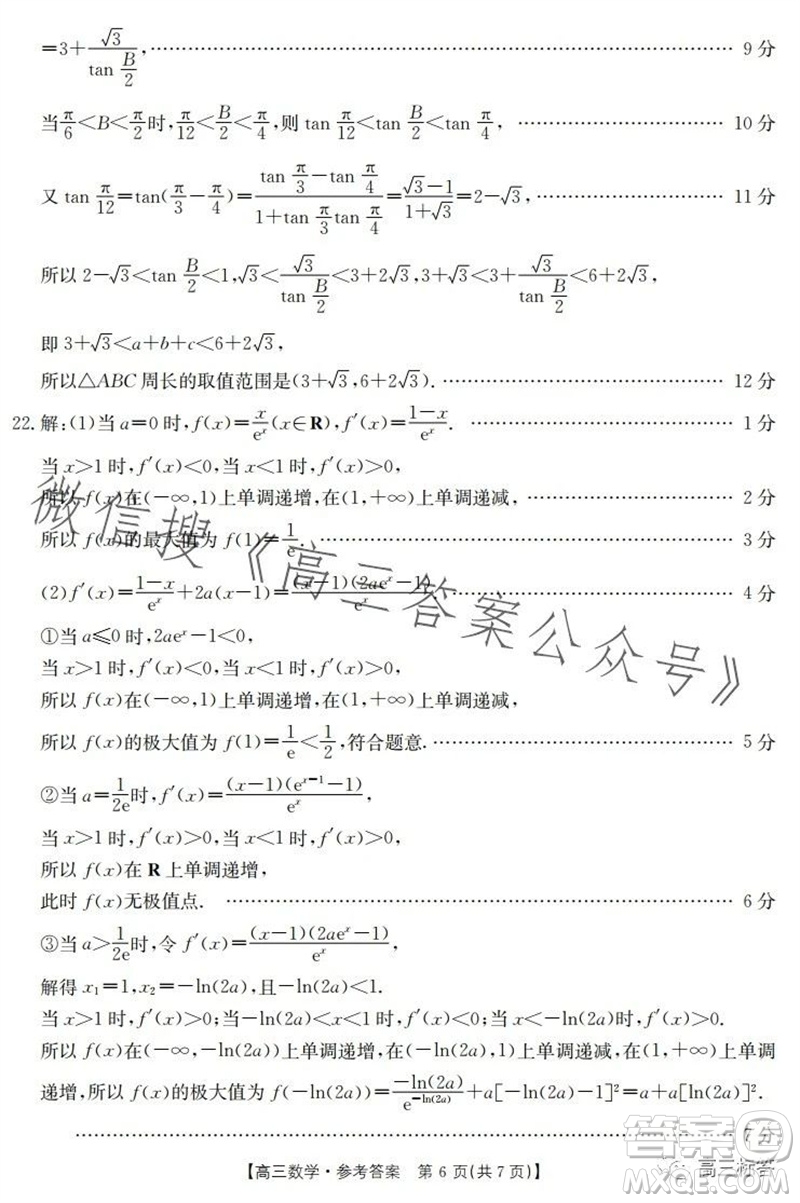 =3+√3/tan(B/2),……9分
当π/6<B<π/2时,π/12<B/2<π/4,则 tan π/12<tan B/2<tan π/4,……10分
又 tan π/12=tan(π/3-π/4)=(tan π/3-tan π/4)/(1+tan π/3 tan π/4)=(√3-1)/(1+√3)=2-√3,……11分
所以 2-√3<tan B/2<1,√3<√3/tan(B/2)<3+2√3,3+√3<3+√3/tan(B/2)<6+2√3,
即 3+√3<a+b+c<6+2√3,
所以△ABC 周长的取值范围是(3+√3,6+2√3).……12分
22.解:(1)当 a=0 时,f(x)=x/eˣ(x∈R),f′(x)=(1-x)/eˣ.……1分
当 x>1 时,f′(x)<0,当 x<1 时,f′(x)>0,
所以 f(x)在(-∞,1)上单调递增,在(1,+∞)上单调递减,……2分
所以 f(x)的最大值为 f(1)=1/e.……3分
(2)f′(x)=(1-x)/eˣ+2a(x-1)=(x-1)(2aeˣ-1)/eˣ.……4分
①当 a≤0 时,2aeˣ-1<0,
当 x>1 时,f′(x)<0,当 x<1 时,f′(x)>0,
所以 f(x)在(-∞,1)上单调递增,在(1,+∞)上单调递减,
所以 f(x)的极大值为 f(1)=1/e<1/2,符合题意.……5分
②当 a=1/2e时,f′(x)=(x-1)(eˣ⁻¹-1)/eˣ,
当 x>1 时,f′(x)>0,当 x<1 时,f′(x)>0,
所以 f(x)在 R 上单调递增,
此时 f(x)无极值点.……6分
③当 a>1/2e时,令 f′(x)=(x-1)(2aeˣ-1)/eˣ,
解得 x₁=1,x₂=-ln(2a),且-ln(2a)<1.
当 x>1 时,f′(x)>0;当-ln(2a)<x<1时,f′(x)<0;当 x<-ln(2a)时,f′(x)>0.
所以 f(x)在(-∞,-ln(2a))上单调递增,在(-ln(2a),1)上单调递减,在(1,+∞)上单调
递增,所以 f(x)的极大值为 f(-ln(2a))=-ln(2a)/e^(-ln(2a))+a[-ln(2a)-1]²=a+a[ln(2a)]².
……7分
【高三数学·参考答案 第6页(共7页)】
微信搜《高三答案公众号》
答案圈
MXQE.COM
高三标答